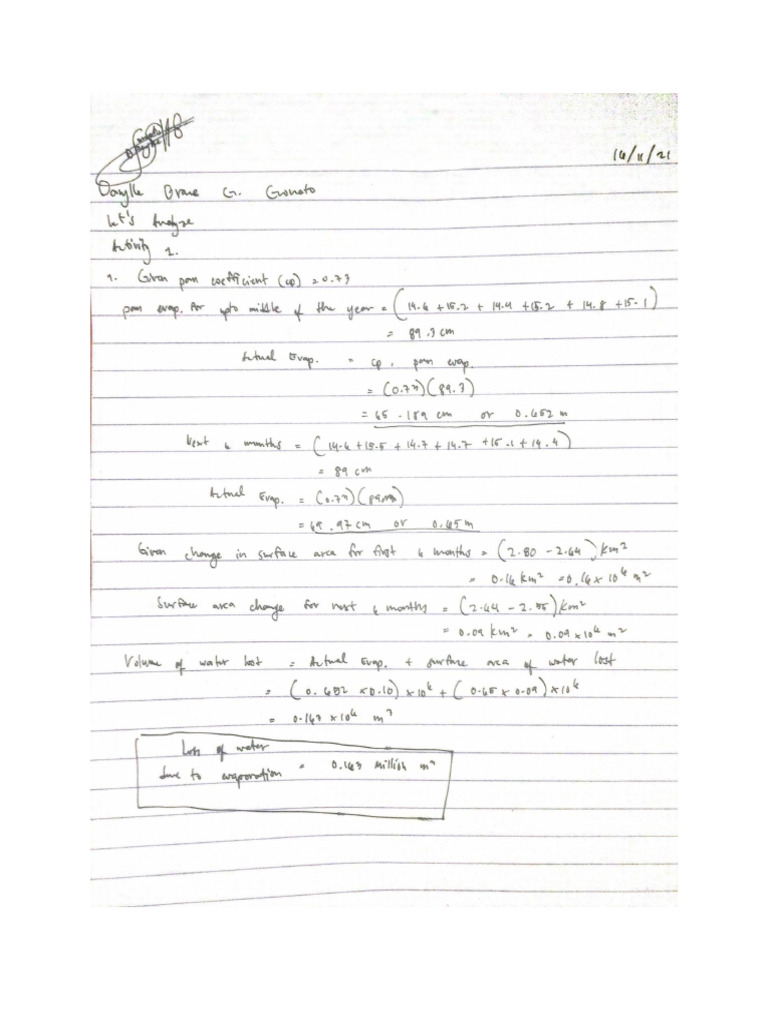 16/11/21
Let's Analyze
Activity 1.
1. Given pan coefficient (cp) = 0.73
pan evap. for upto middle of the year = (14.6 + 15.2 + 14.4 + 15.2 + 14.8 + 15.1)
= 89.3 cm
Actual Evap. = cp . pan evap.
= (0.73)(89.3)
= 65.189 cm or 0.652 m
Next 6 months = (14.6 + 15.5 + 14.7 + 14.7 + 15.1 + 14.4)
= 89 cm
Actual Evap. = (0.73)
= 64.97 cm or 0.65 m
Given change in surface area for first 6 months = (2.80 - 2.64) km²
= 0.16 km² = 0.16 x 10⁶ m²
Surface area change for next 6 months = (2.64 - 2.55) km²
= 0.09 km² = 0.09 x 10⁶ m²
Volume of water lost = Actual Evap. + surface area of water lost
= (0.652 x 0.16) x 10⁶ + (0.65 x 0.09) x 10⁶
= 0.163 x 10⁶ m³
Loss of water
due to evaporation = 0.163 million m³